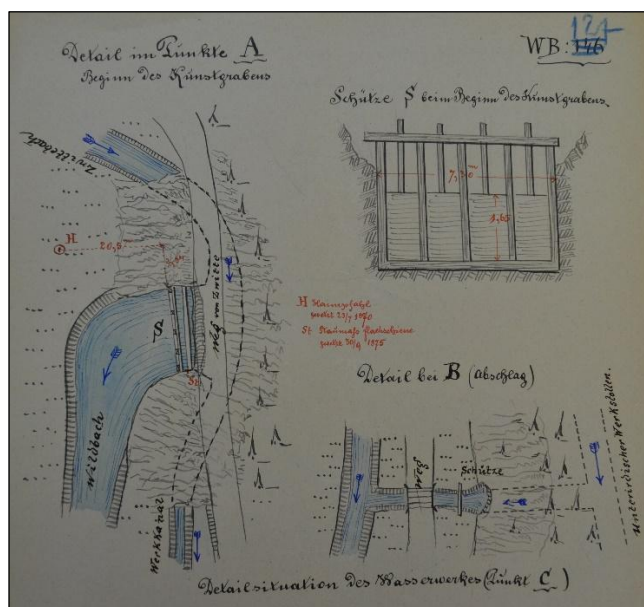 Detail im Punkte A
Beginn des Kunstgrabens
WB: 146
127
Schütze S beim Beginn des Kunstgrabens.
Zwittebach
H.
20,5
Weg von Zwitte
S
St
Wildbach
Werkkanal
7,20
1,25
H Haimspfahl
gesetzt 23/7 1870
St. Staumaß
gesetzt 30/9 1875
Detail bei B (Abschlag)
Weg
Schütze
Unterirdischer Werkstollen.
Detailsituation des Wasserwerkes (Punkt C)